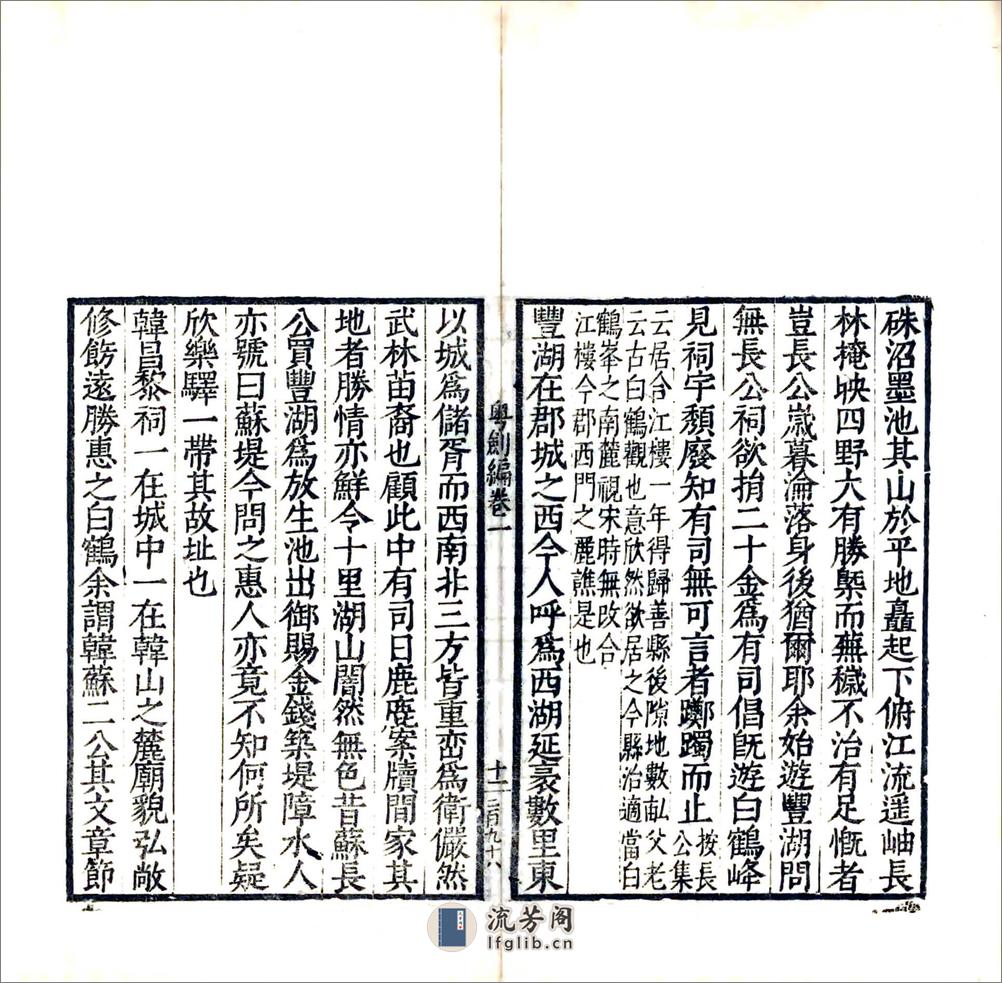 硃沼墨池其山於平地矗起下俯江流遥岫長
林掩映四野大有勝槩而蕪穢不治有足慨者
豈長公歳暮淪落身後猶爾耶余始遊豐湖問
無長公祠欲捐二十金爲有司倡旣遊白鶴峰
見祠宇頽廢知有司無可言者躑躅而止按長公集
云居合江樓一年得歸善縣後隙地數畝父老
云古白鶴觀也意欣然欲居之今縣治適當白
鶴峯之南麓視宋時無改合
江樓今郡西門之麗譙是也
豐湖在郡城之西今人呼爲西湖延袤數里東
粤劍編卷一
十二
二百九十八
以城爲儲胥而西南非三方皆重峦爲衛儼然
武林苗裔也顧此中有司日鹿鹿案牘間家其
地者勝情亦鮮令十里湖山闇然無色昔蘇長
公買豐湖爲放生池出御賜金錢築堤障水人
亦號曰蘇堤今問之惠人亦竟不知何所矣疑
欣樂驛一帶其故址也
韓昌黎祠一在城中一在韓山之麓廟貌弘敞
修飭遠勝惠之白鶴余謂韓蘇二公其文章節
流芳阁
lfglib.cn